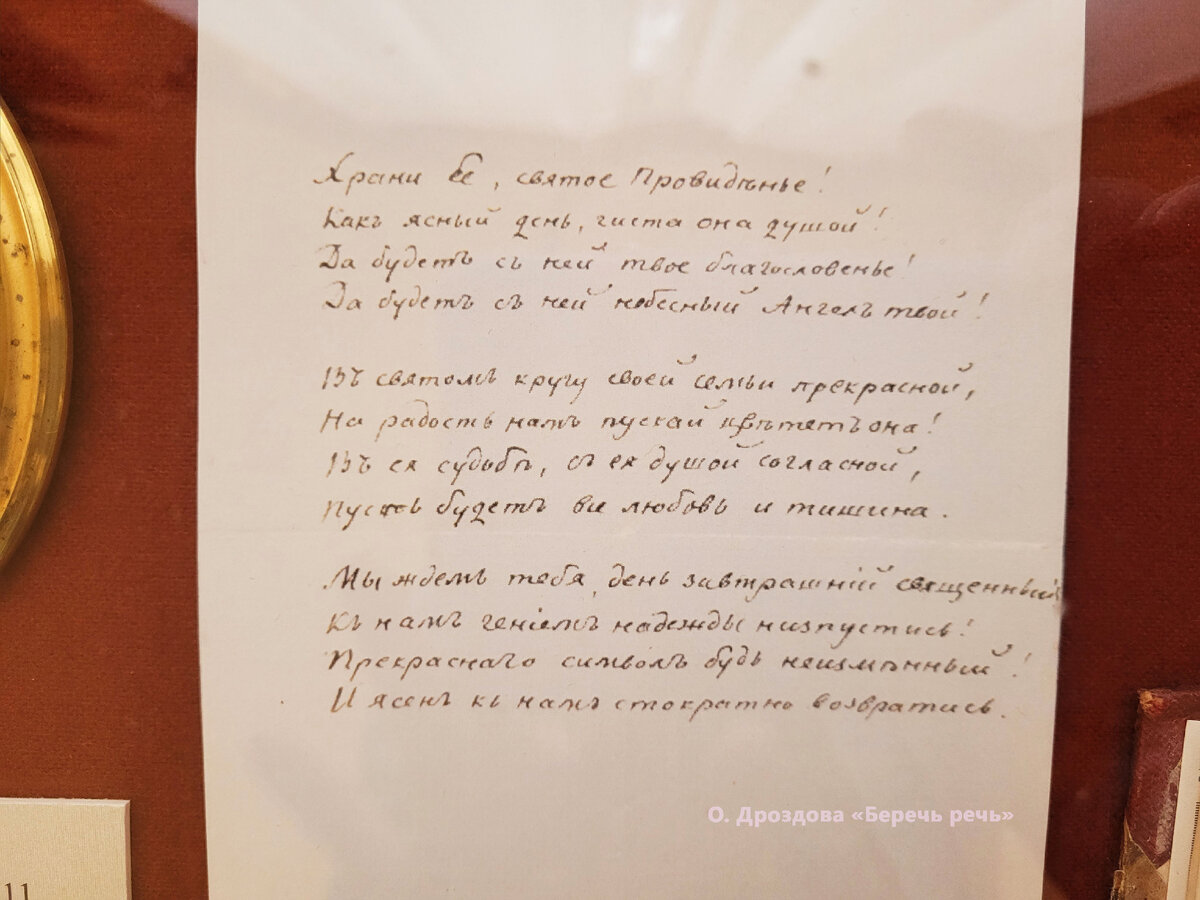 Храни ее, святое Провидѣнье!
Какъ ясный день, чиста она душой!
Да будетъ съ ней твое благословенье!
Да будетъ съ ней небесный Ангелъ твой!
Въ святомъ кругу своей семьи прекрасной,
На радость намъ пускай цвѣтетъ она!
Въ ея судьбѣ, съ ея душой согласной,
Пусть будетъ все любовь и тишина.
Мы ждемъ тебя, день завтрашній священный
Къ намъ геніемъ надежды низпустись!
Прекраснаго символъ будь неизмѣнный!
И ясенъ къ намъ стократно возвратись.
О. Дроздова «Беречь речь»
11